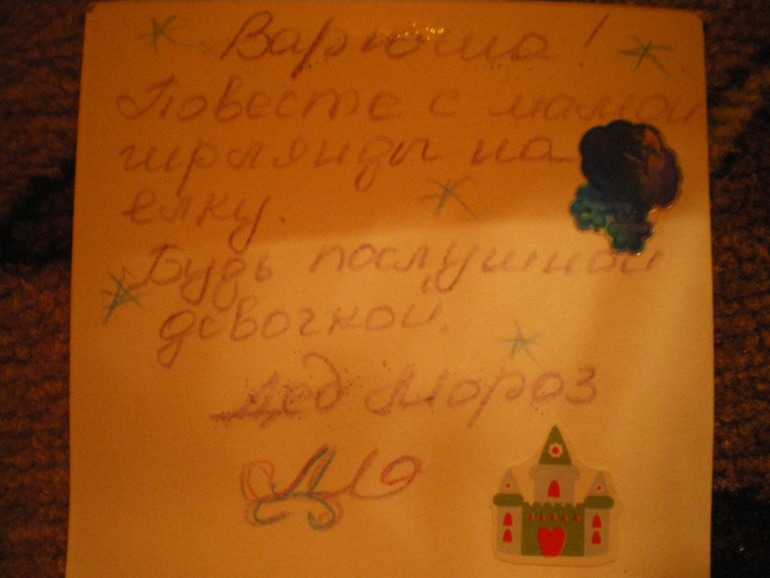 Варюша!
Повесте с мамой
гирлянды на
елку.
Будь послушной
девочкой.
Дед Мороз
ДМ